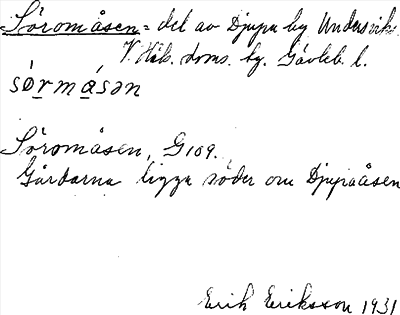 Söromåsen = del av Djupa by Undersviks.
V. Häls. doms. sg. Gävleb. l.
sórmásən
Söromåsen, G109.
Gårdarna ligga söder om Djupaåsen
Erik Eriksson 1931